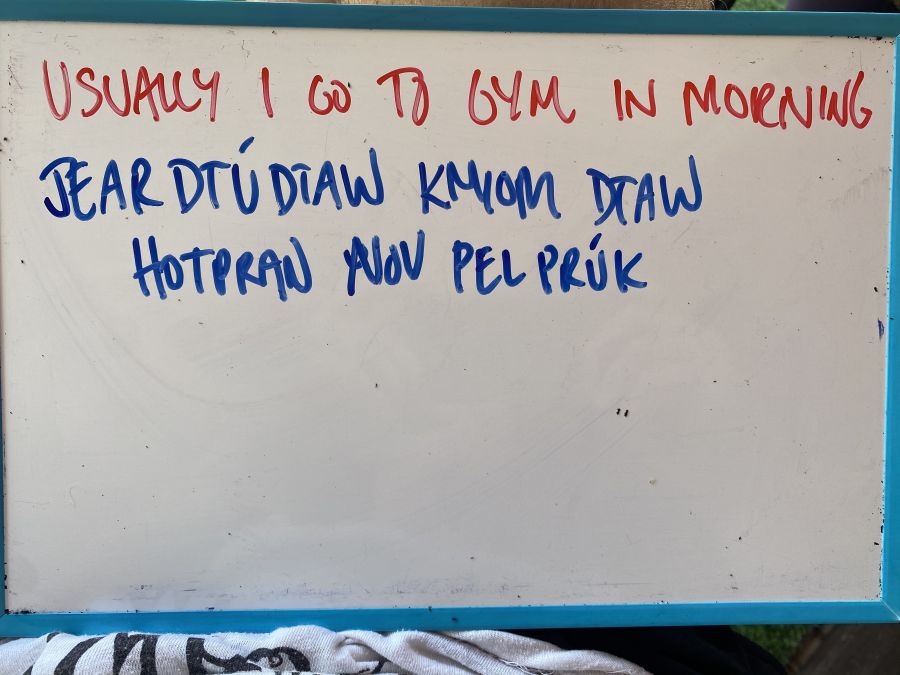 USUALLY I GO TO GYM IN MORNING
JEAR DTÚDTAW KNYOM DTAW
HOTPRAN NOV PEL PRÚK